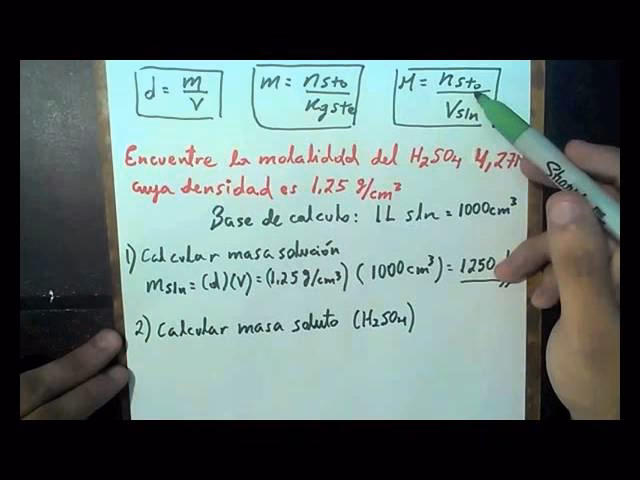 d = m/V
m = nsto/Kgste
M = nsto/Vsln
Encuentre la molalidad del H₂SO₄ 4,27M
cuya densidad es 1,25 g/cm³
Base de calculo: 1L sln = 1000cm³
1) Calcular masa solución
msln = (d)(V) = (1,25 g/cm³) (1000cm³) = 1250
2) Calcular masa soluto (H₂SO₄)
Sharpie